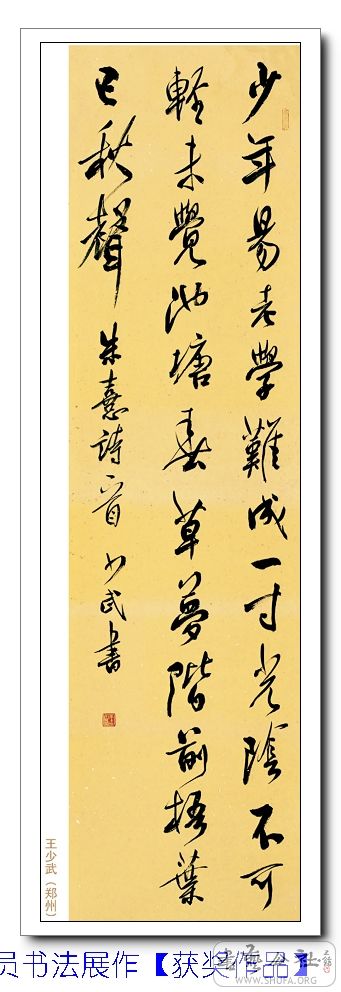 少年易老學難成一寸光陰不可
輕未覺池塘春草夢階前梧葉
已秋聲
朱熹詩一首 少武書
王少武（郑州）
员书法展作【获奖作品】
书艺公社
WWW.SHUFA.ORG